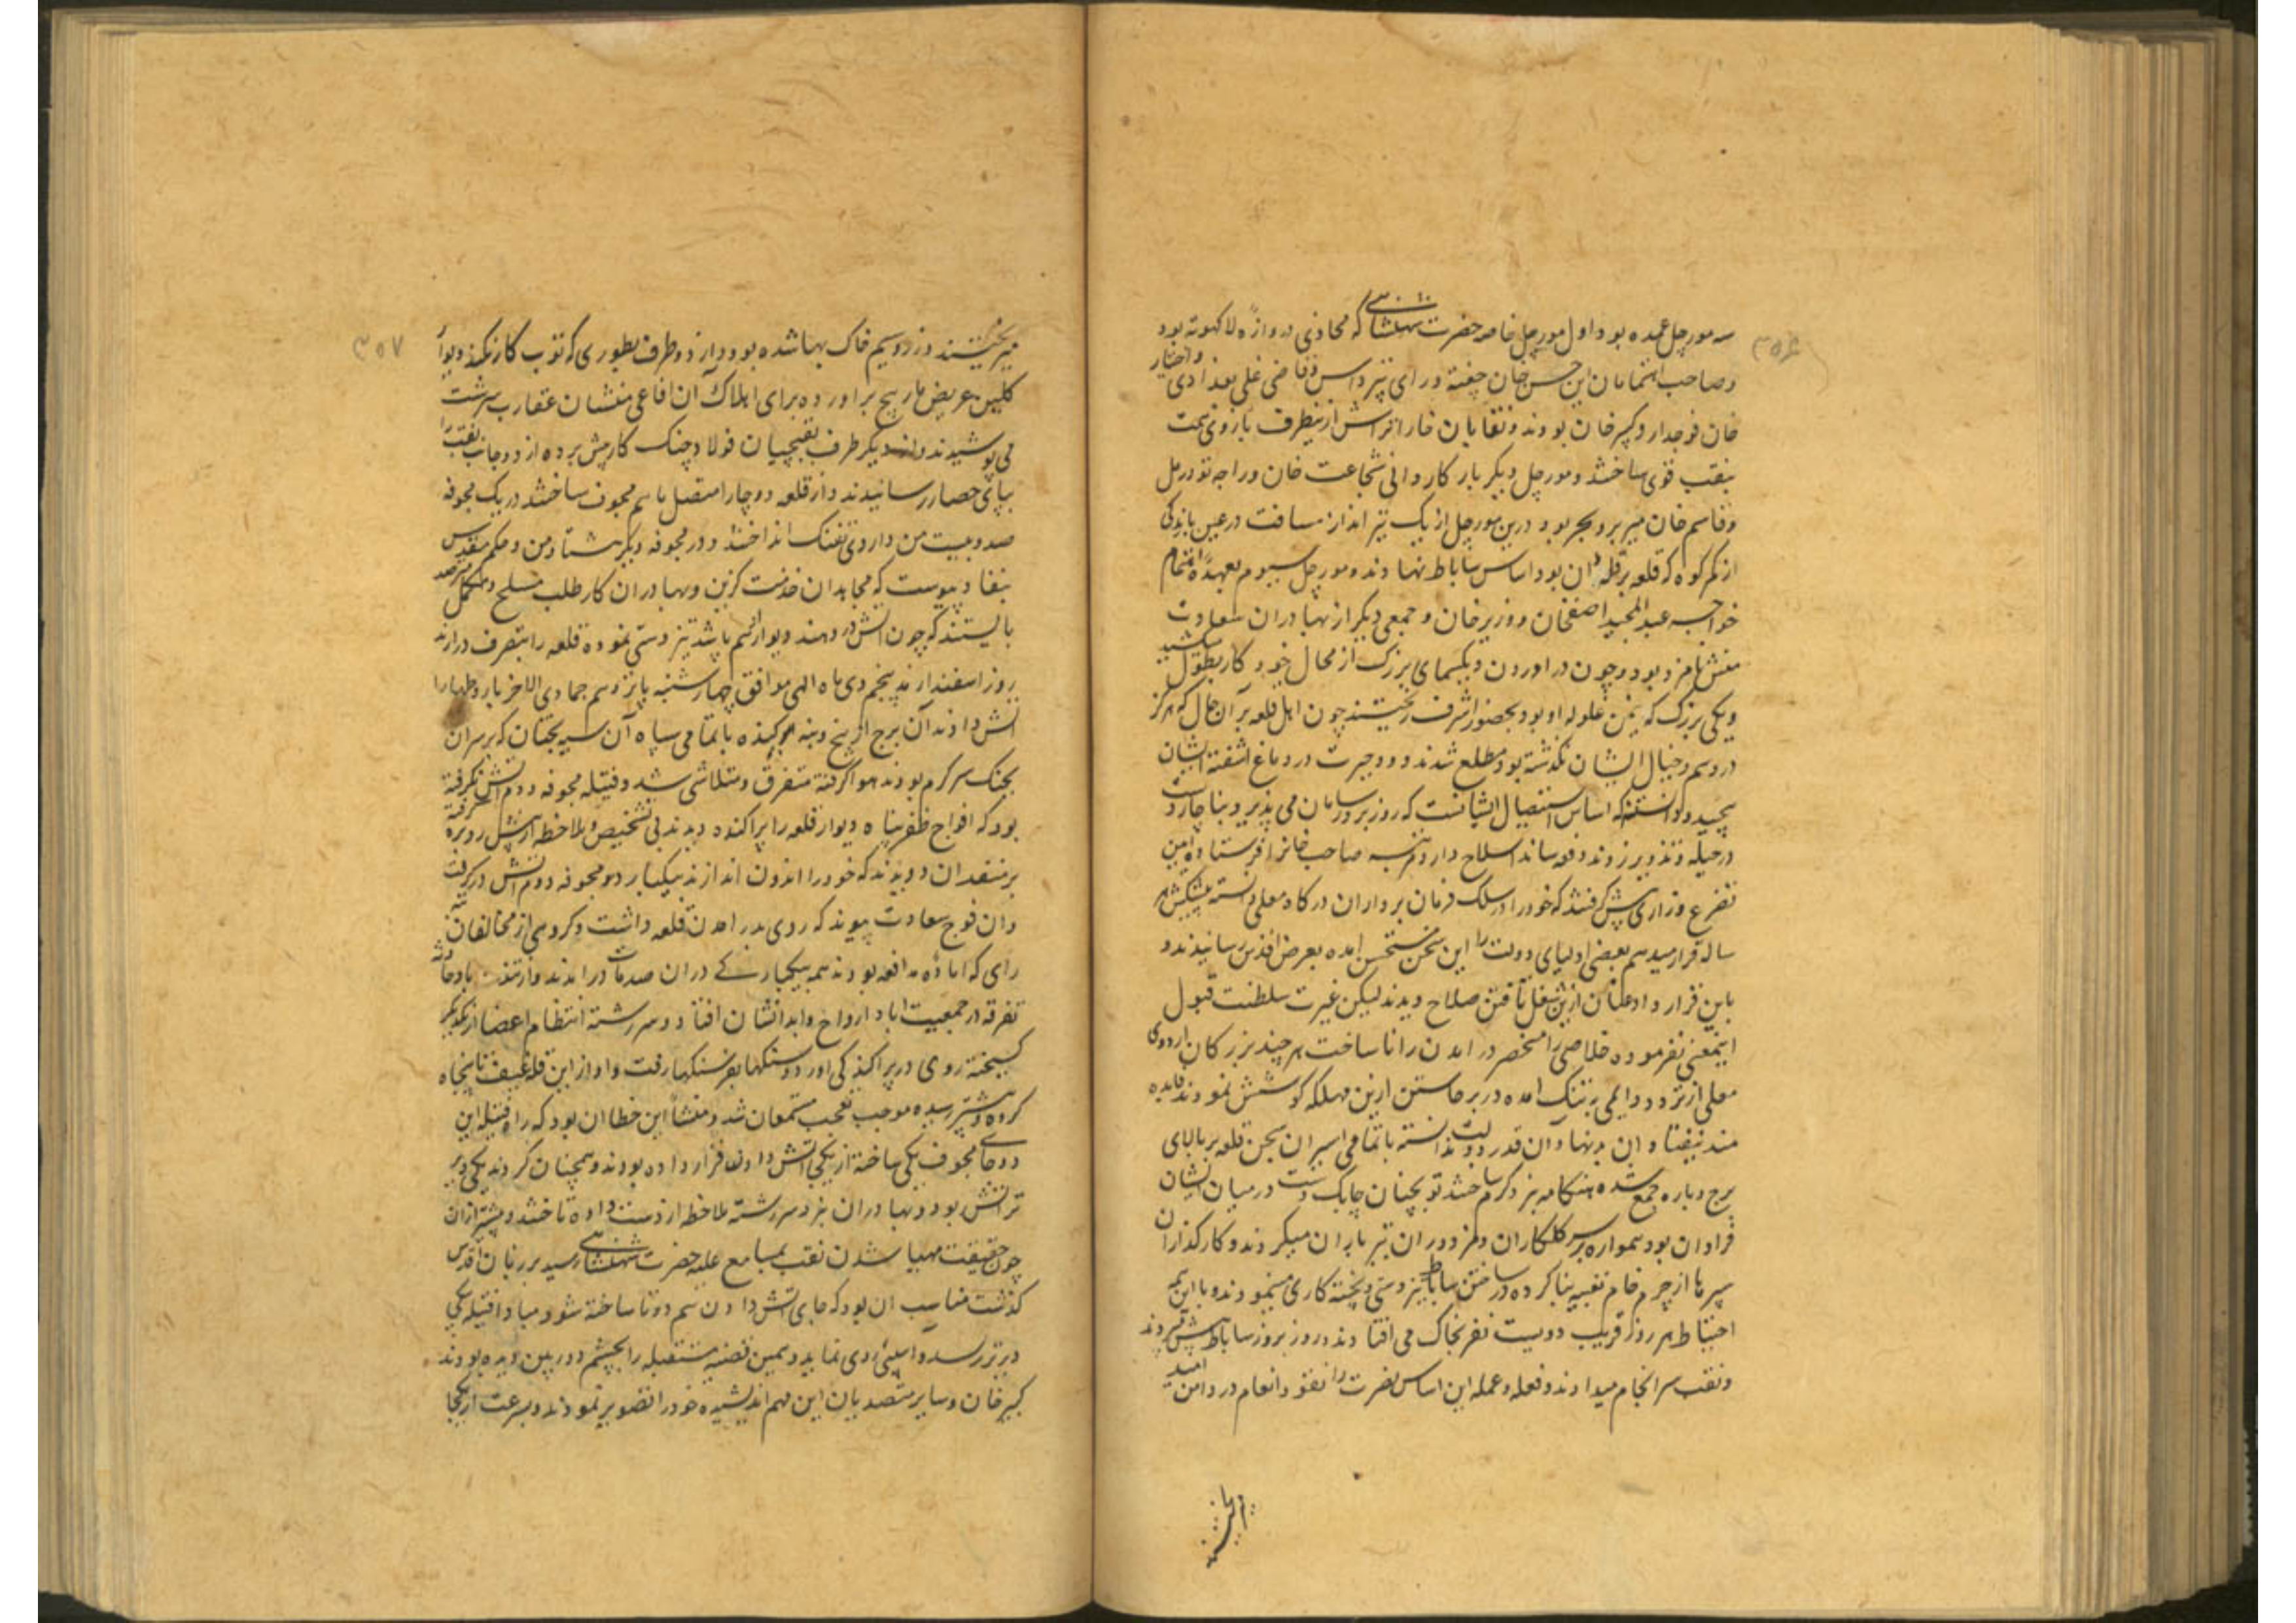 سه مورچل عمده بود اول مورچل خاصه حضرت شاهنشاهی که محاذی دروازه لاکهوته بود
وصاحب اهتمامان این حسن خان چغته و رای پتر داس و قاضی علی بغدادی و اختیار
خان فوجدار و کبیر خان بودند و نقابان خارا تراش ازینطرف بازوی همت
بنقب قوی ساختند و مورچل دیگر بار کاردانی شجاعت خان و راجه تودرمل
و قاسم خان میر بر و بحر بود درین مورچل از یک تیر انداز مسافت در عین بلندی
از کمر کوه که قلعه بر قله آن بود اساس ساباط نهادند و مورچل سیوم بعهده اهتمام
خواجه عبدالمجید اصفخان و وزیر خان و جمعی دیگر از بهادران سعادت
منش نامزد بود و چون در اوردن دیکهای بزرک از محال خود کار بطول میکشید
دیکی بزرک که نیمن غلوله او بود بحضور اشرف ریختند چون اهل قلعه بر آن حال که هرکز
در وهم و خیال ایشان نکذشته بود مطلع شدند دود حیرت در دماغ آشفته ایشان
پیچید و دانستند که اساس استیصال ایشانست که روز بروز سامان می پذیرد بناچار دست
در حیله و تذویر زدند و دفعه ساندا سلاح دار و دفعه صاحب خانرا فرستاده آیین
تضرع و زاری پیش کرفتند که خود را در سلک فرمان برداران درکاه معلی دانسته پیشکش هر
ساله قرار میدهیم بعضی اولیای دولت را این سخن مستحسن امده بعرض اقدس رسانیدند و
باین قرار داد عنان ازین شغل تافتن صلاح دیدند لیکن غیرت سلطنت قبول
اینمعنی نفرموده خلاصی را منحصر در امدن رانا ساخت هرچند بزرکان اردوی
معلی از تردد دایمی به تنک امده در برخاستن ازین مهلکه کوشش نمودند فایده
مند نیفتاد و ان بدنهادان قدر دولت ندانسته با تمامی اسیران سجن قلعه بر بالای
برج و باره جمع شده هنکامه نبرد کرم ساختند توپچیان چابک دست در میان ایشان
فراوان بود همواره بر سر کلکاران و مزدوران تیر باران میکردند و کارکذاران
سپرها از چرم خام تعبیه بنا کرده در ساختن ساباط تیز دستی و پخته کاری مینمودند و با این همه
احتیاط هر روز قریب دویست نفر بخاک می افتادند و روز بروز ساباط پیش میبردند
و نقب سر انجام میدادند و فعله و عمله این اساس نصرت را بنقود انعام در دامن امید
میریختند و زر و سیم خاک بها شده بود و از دو طرف بطوری که توپ کار نکند دیوار
کلین عریض مار پیچ براورده برای اهلاک آن افاعی منشان عقارب سرشت
می پوشیدند و از دیکر طرف نقبچیان فولاد چنک کار پیش برده از دو جانب نقب را
بپای حصار رسانیدند و از قلعه دو جارا متصل باهم مجوف ساختند در یک مجوفه
صد و بیست من داروی تفنک انداختند و در مجوفه دیکر هشتاد من و حکم مقدس
بنفاد پیوست که مجاهدان خدمت کزین و بهادران کار طلب مسلح و مکمل مترصد
بایستند که چون اتش در دهند و دیوار از هم پاشد تیز دستی نموده قلعه را بتصرف درارند
روز اسفندارمذ پنجم دی ماه الهی موافق چهار شنبه پانزدهم جمادی الاخر باروطهارا
اتش دادند آن برج از بیخ و بنه برکنده با تمامی سپاه آن سیه بختان که بر سر ان
بجنک سر کرم بودند هوا کرفته متفرق و متلاشی شد و فتیله مجوفه دوم اتش نکرفته
بود که افواج ظفر پناه دیوار قلعه را پراکنده دیدند بی تشخیص و ملاحظه از پیش رو بره
بر منفذ ان دویدند که خود را اندرون اندازند بیکبار دو مجوفه دوم اتش در کرفت
و ان فوج سعادت پیوند که روی بدر امدن قلعه داشت و کروهی از مخالفان
رای که اماده مدافعه بودند همه بیکبارکی در ان صدمات در امدند و از تند باد حادثه
تفرقه در جمعیت اباد ارواح و ابدانشان افتاد و سر رشته انتظام اعضا از یکدیکر
کسیخته روی در پراکندکی اورد و سنکها بفرسنکها رفت و اواز این قلعه تا پنجاه
کروه و بیشتر رسیده موجب تعجب مستمعان شد و منشأ این خطا ان بود که راه فتیله این
دو جای مجوف یکی ساخته از یکجا اتش دادن قرار داده بودند و همچنان کردند یکی دیر
تر اتش بود و بهادران نبرد سر رشته ملاحظه از دست داده تاختند و پیشتر ازان
چون حقیقت مهیا شدن نقب بمسامع علیه حضرت شاهنشاهی رسید بر زبان اقدس
کذشت مناسب ان بود که جای اتش دادن هم دو تا ساخته شود مبادا فتیله یکی
دیرتر رسد و اسیبی روی نماید و همین قضیه مستقبله را بچشم دوربین دیده بودند
کبیر خان و سایر متصدیان این مهم اندیشیده خود را تصویر نمودند و بسرعت از یکجا